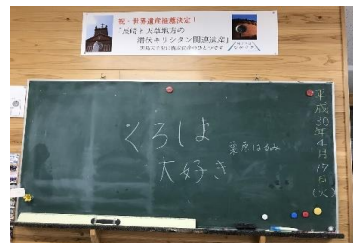 祝・世界遺産推薦決定！
「長崎と天草地方の
潜伏キリシタン関連遺産」
くろしま
大好き
栗原はるみ
平成30年4月17日(火)